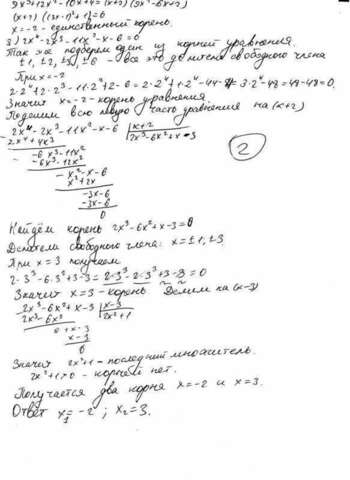 9x³+12x²-10x+4=(x+2)(9x²-6x+2)
(x+2)((3x-1)²+1)=0
x=-2 - единственный корень.
3) 2x⁴-2x³-11x²-x-6=0
Так же подберем один из корней уравнения.
±1, ±2, ±3, ±6 - все это делители свободного члена
При x=-2
2·2⁴+2·2³-11·2²+2-6=2·2⁴+2⁴-44-4=3·2⁴-48=48-48=0.
Значит x=-2-корень уравнения.
Поделим всю левую часть уравнения на (x+2)
2x⁴-2x³-11x²-x-6 | x+2
2x⁴+4x³ 2x³-6x²+x-3
-6x³-11x²
-6x³-12x²
x²-x-6
x²+2x
-3x-6
-3x-6
0
2
Найдём корень 2x³-6x²+x-3=0
Делители свободного члена: x=±1,±3
При x=3 получаем
2·3³-6·3²+3-3=2·3³-2·3³+3-3=0
Значит x=3-корень Делим на (x-3)
2x³-6x²+x-3 | x-3
2x³-6x² 2x²+1
0+x-3
x-3
0
Значит 2x²+1-последний множитель.
2x²+1>0 - корней нет.
Получается два корня x=-2 и x=3.
Ответ x₁=-2; x₂=3.